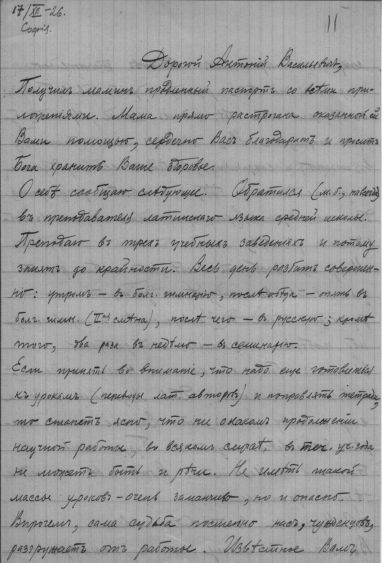 17/XII-26.
Софія.
11
Дорогой Антоній Васильевичъ,
Получилъ маминъ продленный паспортъ со всѣми при-
ложеніями. Мама прямо растрогана оказанной ей
Вами помощью, сердечно Васъ благодаритъ и проситъ
Бога хранить Ваше здоровье.
О себѣ сообщаю слѣдующее. Обратился (м.б., навсегда)
въ преподавателя латинскаго языка средней школы.
Преподаю въ трехъ учебныхъ заведеніяхъ и потому
занятъ до крайности. Весь день разбитъ совершен-
но: утромъ – въ болг. гимназію, послѣ обѣда – опять въ
болг. гимн. (II-я смѣна), послѣ чего – въ русскую; кромѣ
того, два раза въ недѣлю – въ семинарію.
Если принять во вниманіе, что надо еще готовиться
къ урокамъ (переводы лат. авторовъ) и поправлять тетради,
то станетъ ясно, что ни о какомъ продолженіи
научной работы, во всякомъ случаѣ, въ теч. уч. года
не можетъ быть и рѣчи. Не имѣть такой
массы уроковъ – очень заманчиво, но и опасно.
Впрочемъ, сама судьба постепенно насъ, чужденцовъ,
разгружаетъ отъ работы. Извѣстное Вамъ